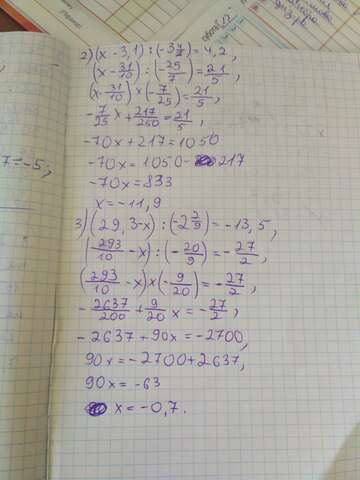 2) (x - 3,1) : (-3 4/7) = 4,2,
(x - 31/10) : (-25/7) = 21/5,
(x - 31/10) × (-7/25) = 21/5,
-7/25 x + 217/250 = 21/5,
-70x + 217 = 1050
-70x = 1050 - 217
-70x = 833
x = -11,9
7 = -5;
3) (29,3 - x) : (-2 2/9) = -13,5,
(293/10 - x) : (-20/9) = -27/2,
(293/10 - x) × (-9/20) = -27/2,
-2637/200 + 9/20 x = -27/2,
-2637 + 90x = -2700,
90x = -2700 + 2637,
90x = -63
x = -0,7.